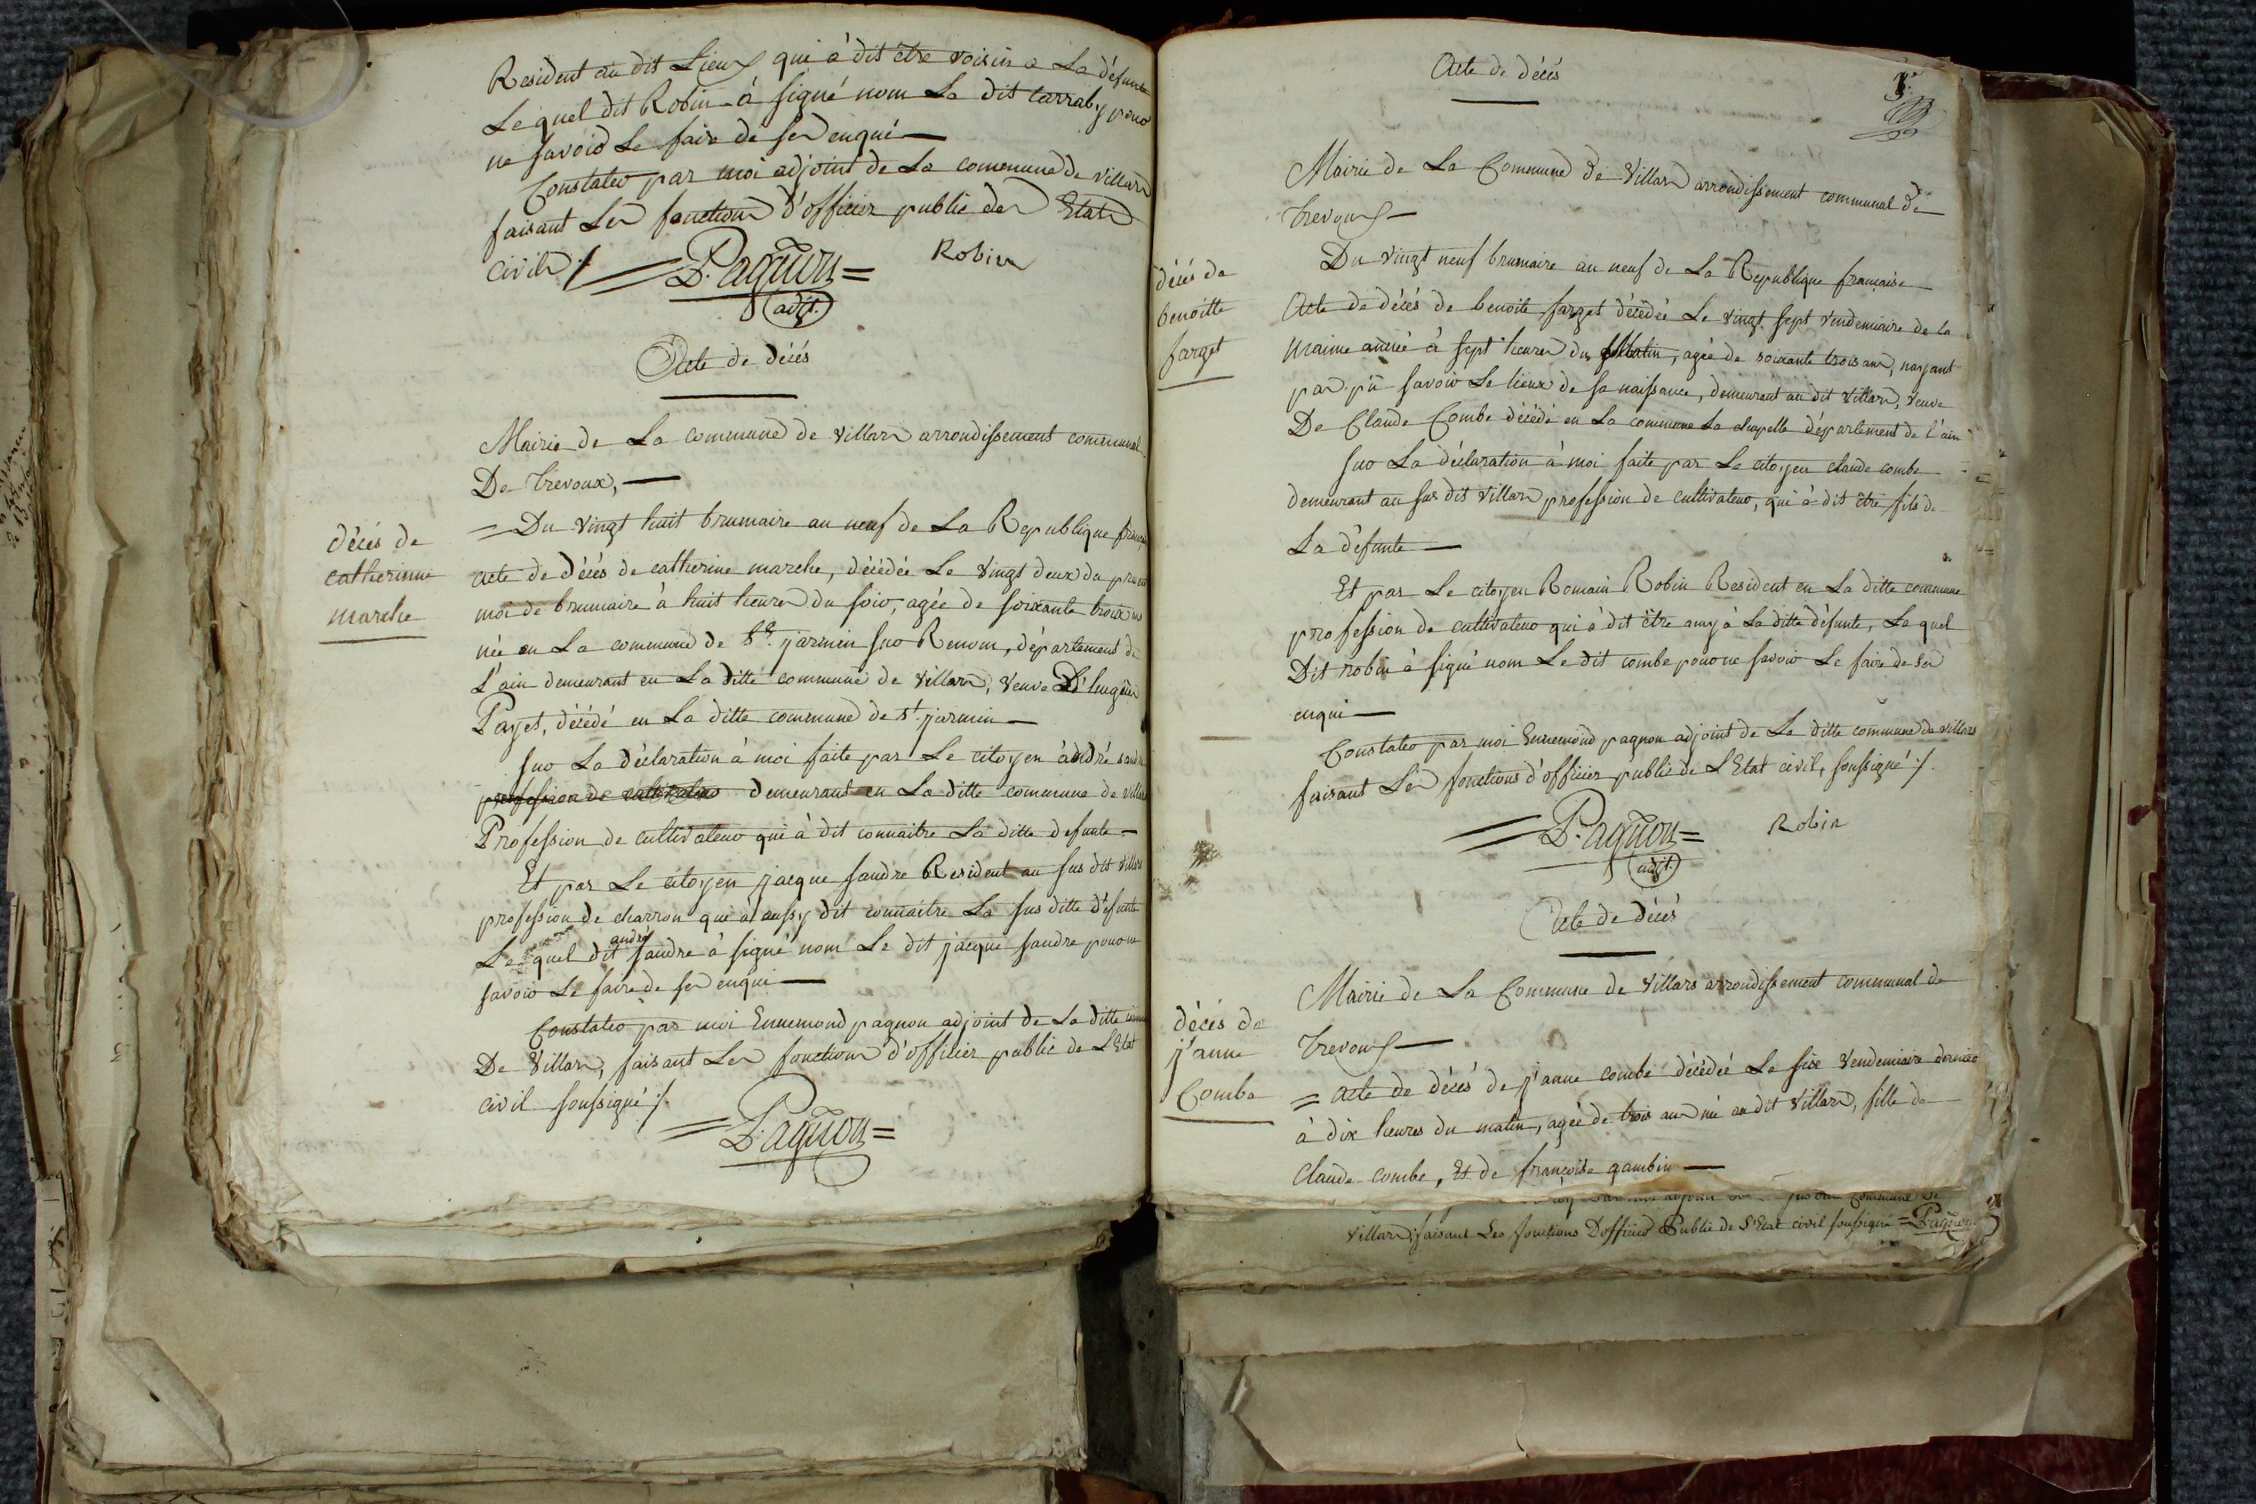 Resident au dit Lieux qui à dit être voisin a La défunte
Le quel dit Robin à signé nom Le dit Carraby pour
ne savoir Le faire de ser enqui
Constater par moi adjoint de La commune de villars
faisant Les fonctions d'officier public des Etats
civils
P. agnon
Robin
adjt.
Acte de décés
Mairie de La commune de villars arrondissement communal
De Trevoux,
décés de
catherinne
marche
= Du vingt huit brumaire an neuf de La Republique
acte de décés de catherine marche, décédée Le vingt deux du
moi de brumaire à huit heures du soir, agée de soixante trois
née en La commune de St. jarmin sur Renom, département de
L'ain demeurant en La ditte commune de Villars, veuve
Payet, décédé en La ditte commune de St. jarmin
sur La déclaration à moi faite par Le citoyen andré
profession de cultivateur demeurant en La ditte commune de villars
Profession de cultivateur qui à dit connaitre La ditte defunte
Et par Le citoyen jacque sandre Resident au sus dit villars
profession de charron qui à aussy dit connaitre La sus ditte défunte
andré
Le quel dit sandre à signé nom Le dit jacque sandre pour ne
savoir Le faire de ser enqui
Constater par moi Ennemond pagnon adjoint de La ditte
De Villars, faisant Les fonctions d'officier public de L'Etat
civil soussigné
P. agnon
Acte de décés
Mairie de La Commune de Villars arrondissement communal de
Trevoux
décés de
benoitte
farget
Du vingt neuf brumaire an neuf de La Republique française
Acte de décés de benoite farget décédée Le vingt sept vendemiaire de la
maime année à sept heures du Matin, agée de soixante trois ans, nayant
pas pû savoir Le lieux de sa naissance, demeurant au dit Villars, veuve
De Claude Combe décédé en La commune La chapelle département de l'ain
sur La déclaration à moi faite par Le citoyen claude combe
demeurant au sus dit villars profession de cultivateur, qui à dit être fils de
La défunte
Et par Le citoyen Romain Robin Resident en La ditte commune
profession de cultivateur qui à dit être amy à La ditte défunte, Le quel
Dit robin à signé nom Le dit combe pour ne savoir Le faire de ser
enqui
Constater par moi Ennemond pagnon adjoint de La ditte commune de villars
faisant Les fonctions d'officier public de L'Etat civil, soussigné
P. agnon
Robin
adjt.
Acte de décés
Mairie de La Commune de Villars arrondissement communal de
Trevoux
décés de
j'anne
Combe
= acte de décés de j'anne combe décédée Le sise Vendemiaire dernier
à dix heures du matin, agée de trois ans né au dit Villars, fille de
Claude combe, Et de françoise gambin
Villars faisant Les fonctions D'officier Public de L'Etat civil soussigné = P. agnon